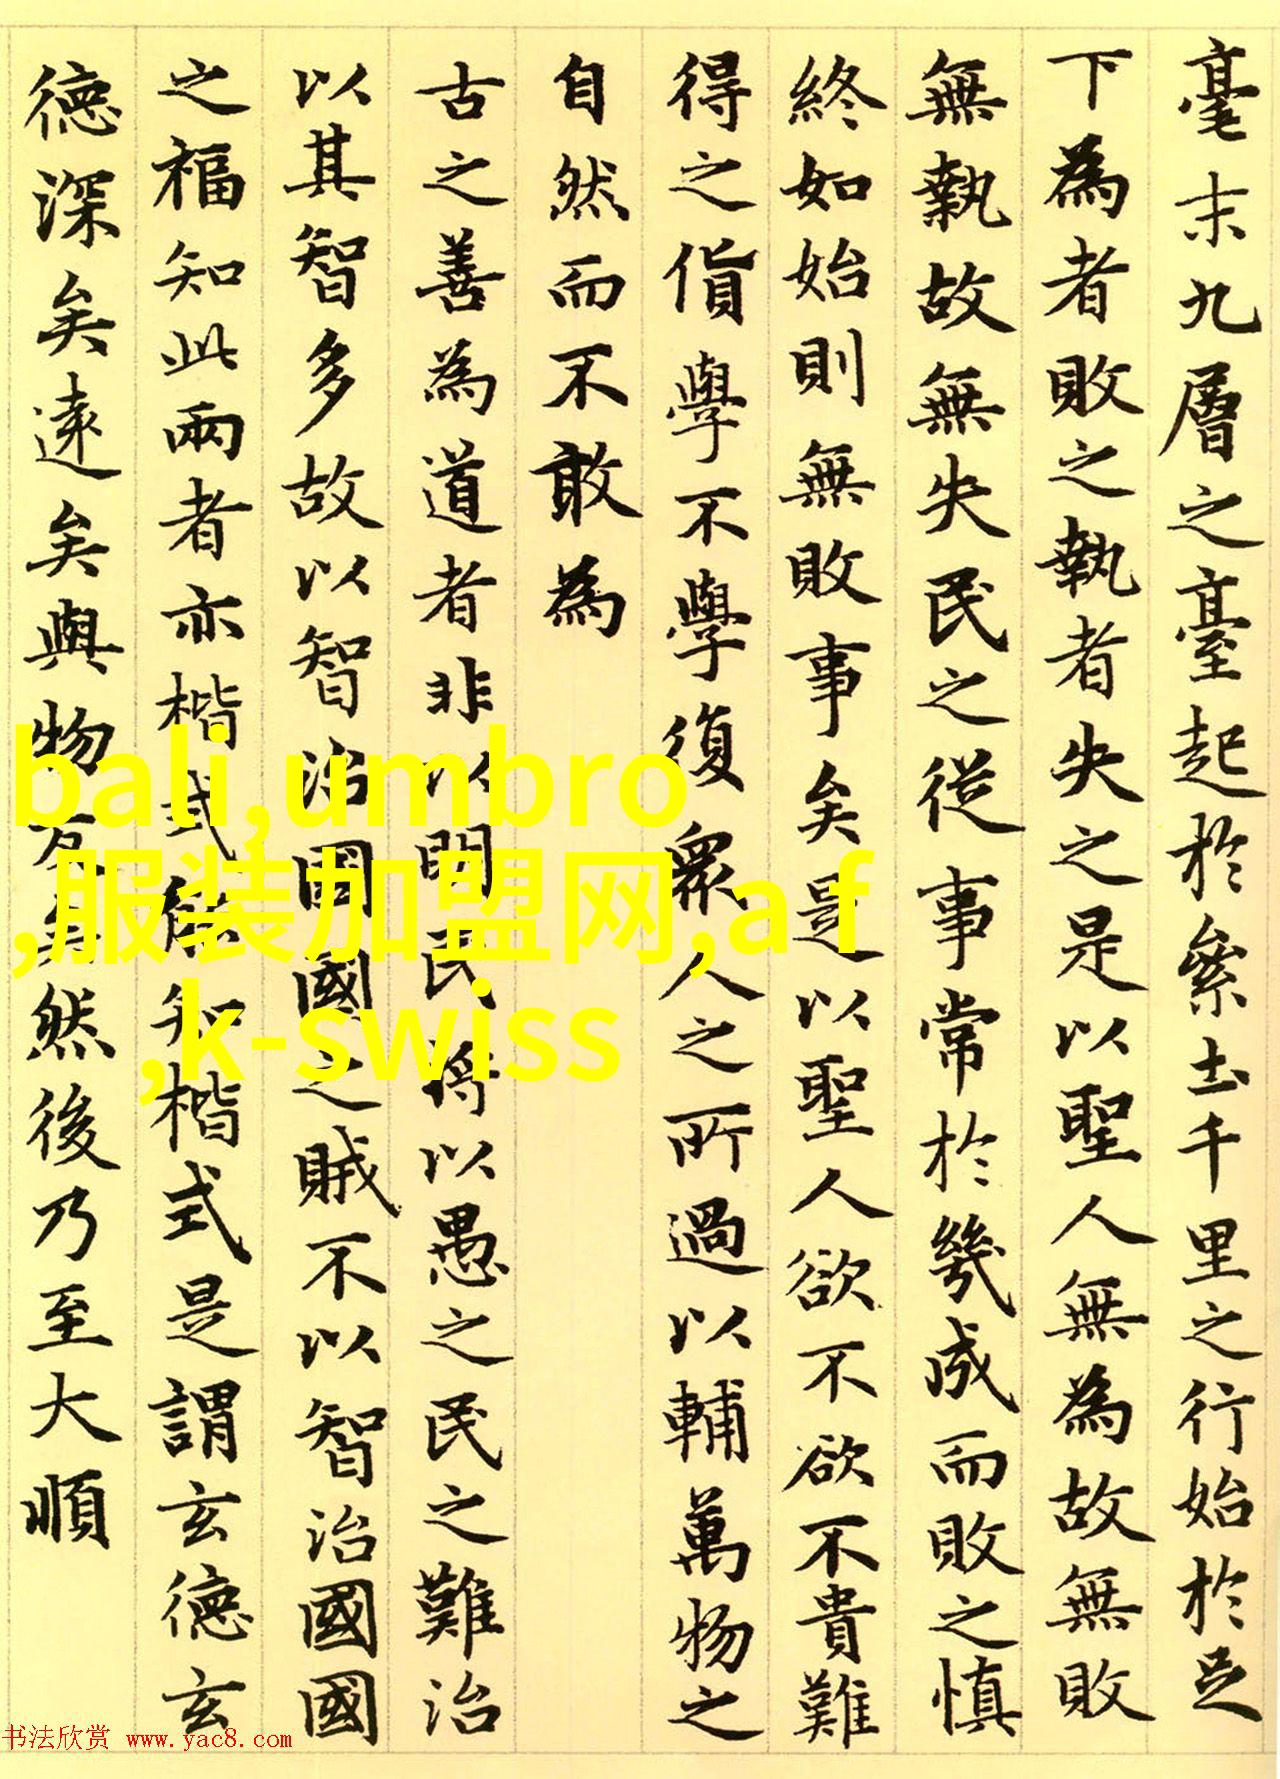 毫末九層之臺起於絫土千里之行始於足
下為者敗之執者失之是以聖人無為故無敗
無執故無失民之從事常於幾成而敗之慎
終如始則無敗事矣是以聖人欲不欲不貴難
得之貨學不學復眾人之所過以輔萬物之
自然而不敢為
古之善為道者非以明民將以愚之民之難治
以其智多故以智治國國之賊不以智治國國
之福知此兩者亦楷式能知楷式是謂玄德玄
德深矣遠矣與物反矣然後乃至大順
bali,umbro
,服装加盟网,a f
,k-swiss
书法欣赏 www.yac8.com